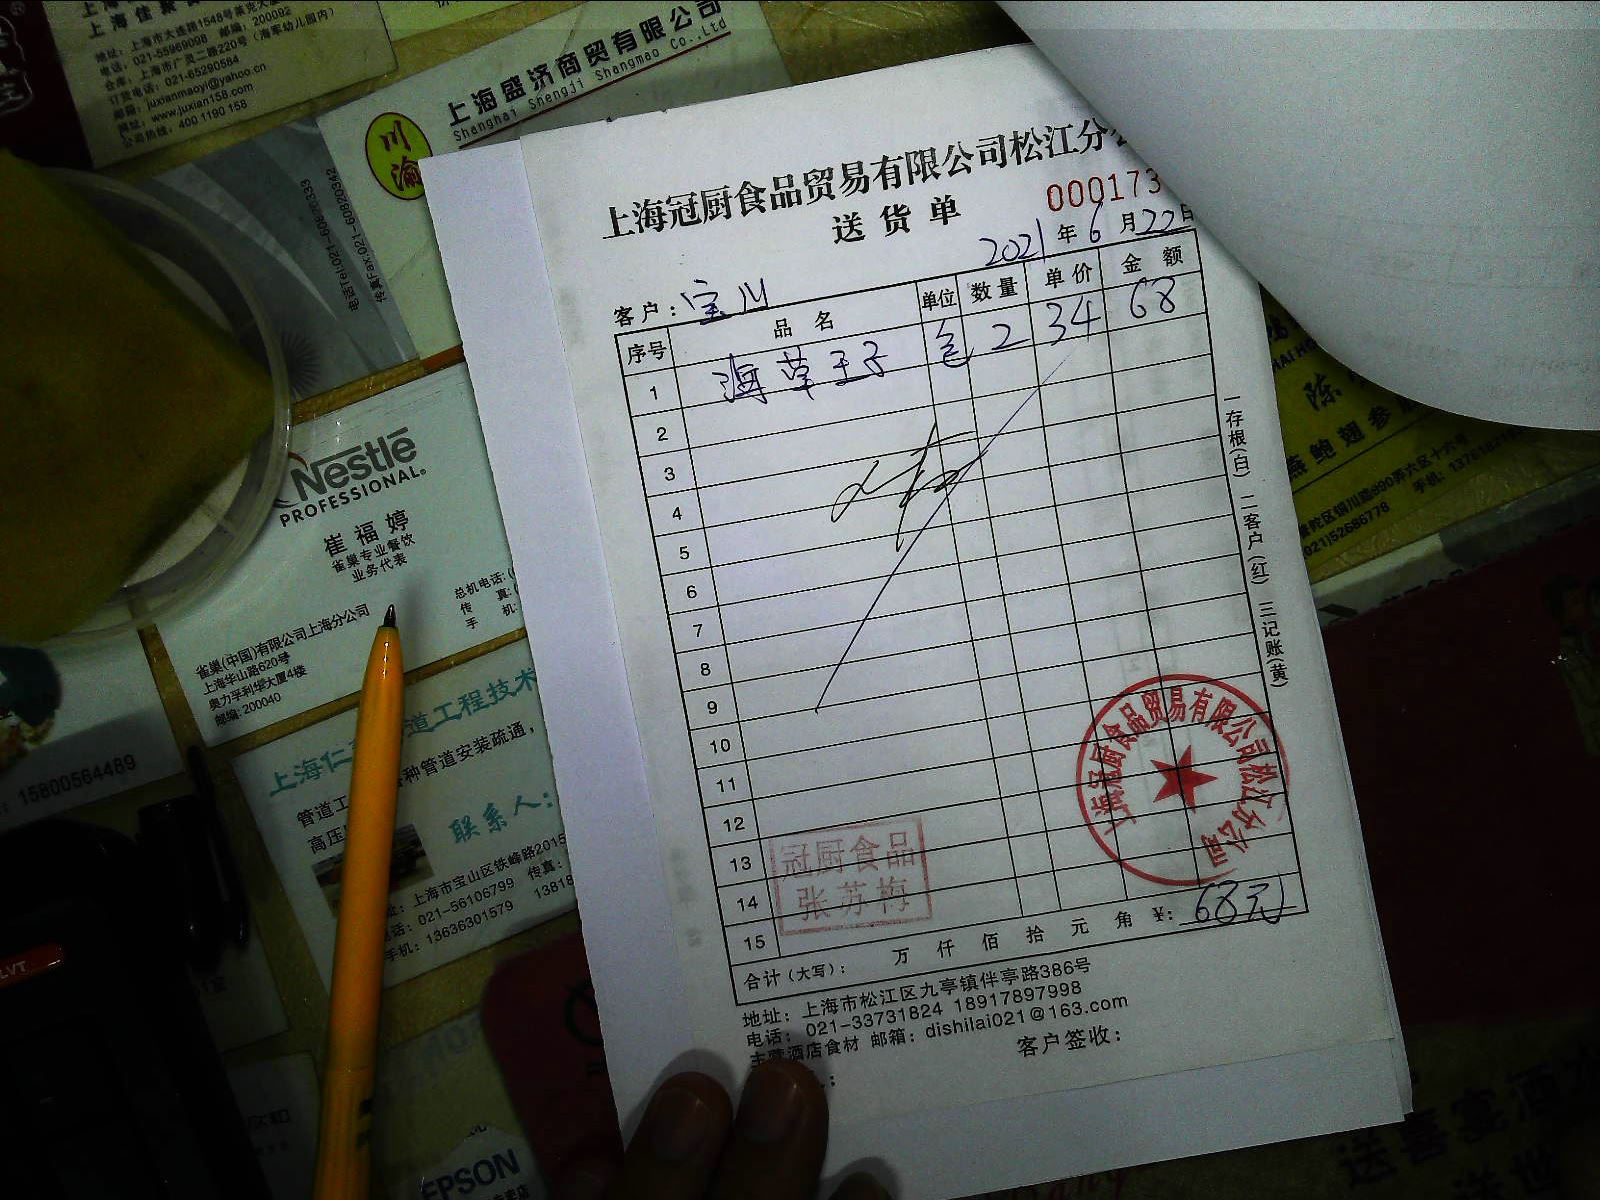 地址：上海市大连路1548号莱克大
电话：021-55969098 邮编：200092
仓库：上海市广灵二路220号（海军幼儿园内）
订货电话：021-65290584
邮箱：juxianmaoyi@yahoo.cn
网址：www.juxian158.com
公司热线：400 1190 158
川渝
上海盛济商贸有限公司
Shanghai Shengji Shangmao Co.,Ltd
传真Fax:021-60820342
上海冠厨食品贸易有限公司松江分
送货单
000173
2021年6月22日
客户：宝川
序号 品名 单位 数量 单价 金额
1 海草王子 包 2 34 68
2
3
4
5
6
7
8
9
10
11
12
13
14
15
合计（大写）： 万 仟 佰 拾 元 角 ¥：68元
地址：上海市松江区九亭镇伴亭路386号
电话：021-33731824 18917897998
主营酒店食材 邮箱：dishilai021@163.com
客户签收：
一存根(白) 二客户(红) 三记账(黄)
上海冠厨食品贸易有限公司松江分公司
冠厨食品
张苏梅
Nestlé
PROFESSIONAL®
崔福婷
雀巢专业餐饮
业务代表
总机电话:(
传 真:(
手 机:
雀巢(中国)有限公司上海分公司
上海华山路620号
奥力孚利华大厦4楼
邮编: 200040
上海仁 道工程技术
管道工 种管道安装疏通，
高压
联系人：
址：上海市宝山区铁峰路2015
电话：021-56106799 传真：
手机：13636301579 13818
15800564489
LVT
EPSON
陈
燕鲍翅参
普陀区铜川路990弄六区十六号
(021)52686778
手机：
送喜宴酒水
送世